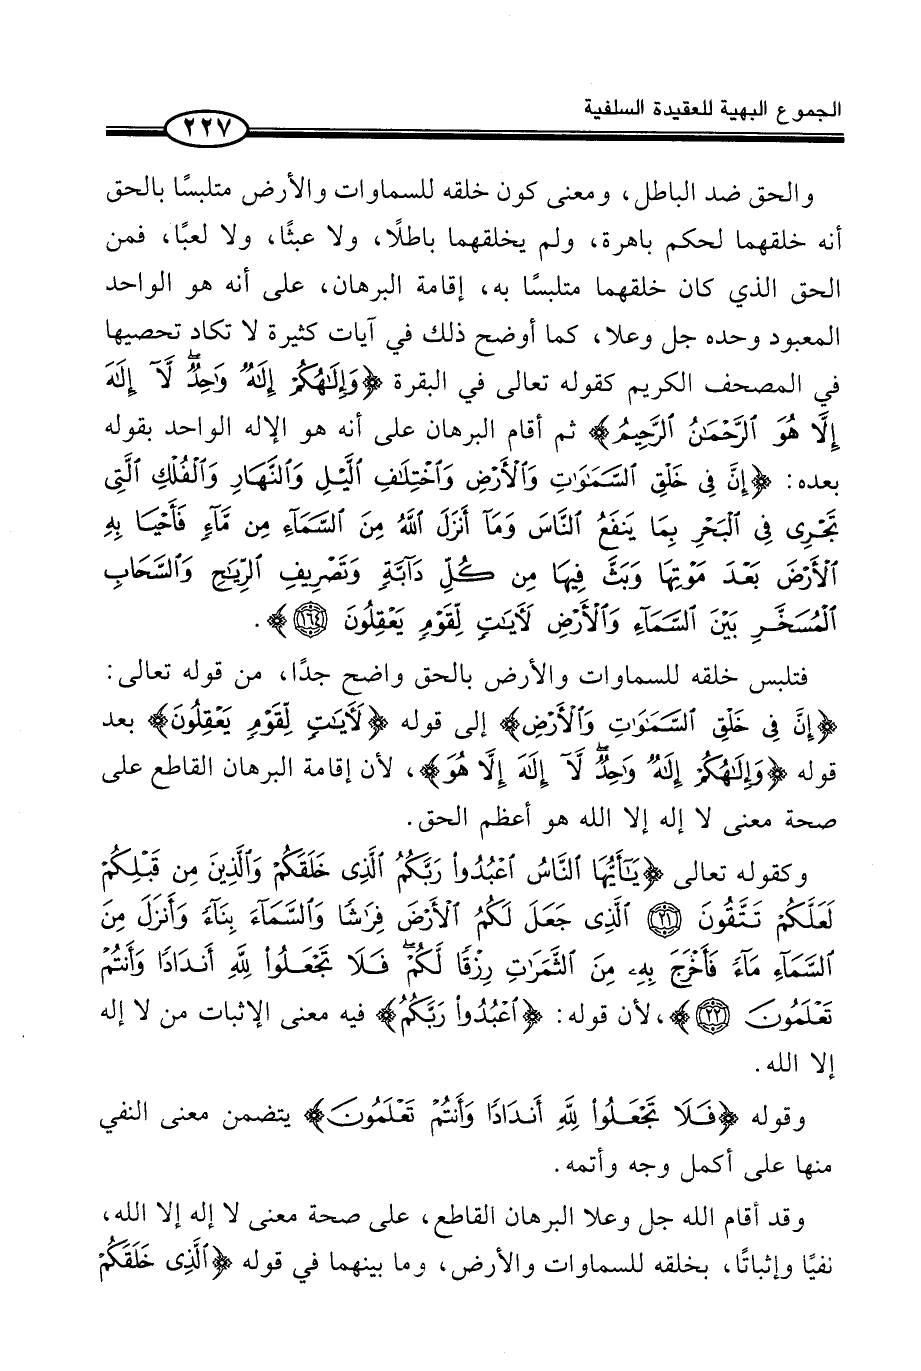 الجموع البهية للعقيدة السلفية
٢٢٧
والحق ضد الباطل، ومعنى كون خلقه للسماوات والأرض متلبسًا بالحق
أنه خلقهما لحكم باهرة، ولم يخلقهما باطلًا، ولا عبثًا، ولا لعبًا، فمن
الحق الذي كان خلقهما متلبسًا به، إقامة البرهان، على أنه هو الواحد
المعبود وحده جل وعلا، كما أوضح ذلك في آيات كثيرة لا تكاد تحصيها
في المصحف الكريم كقوله تعالى في البقرة ﴿وَإِلَٰهُكُمۡ إِلَٰهٞ وَٰحِدٞۖ لَّآ إِلَٰهَ
إِلَّا هُوَ ٱلرَّحۡمَٰنُ ٱلرَّحِيمُ﴾ ثم أقام البرهان على أنه هو الإله الواحد بقوله
بعده: ﴿إِنَّ فِي خَلۡقِ ٱلسَّمَٰوَٰتِ وَٱلۡأَرۡضِ وَٱخۡتِلَٰفِ ٱلَّيۡلِ وَٱلنَّهَارِ وَٱلۡفُلۡكِ ٱلَّتِي
تَجۡرِي فِي ٱلۡبَحۡرِ بِمَا يَنفَعُ ٱلنَّاسَ وَمَآ أَنزَلَ ٱللَّهُ مِنَ ٱلسَّمَآءِ مِن مَّآءٖ فَأَحۡيَا بِهِ
ٱلۡأَرۡضَ بَعۡدَ مَوۡتِهَا وَبَثَّ فِيهَا مِن كُلِّ دَآبَّةٖ وَتَصۡرِيفِ ٱلرِّيَٰحِ وَٱلسَّحَابِ
ٱلۡمُسَخَّرِ بَيۡنَ ٱلسَّمَآءِ وَٱلۡأَرۡضِ لَأٓيَٰتٖ لِّقَوۡمٖ يَعۡقِلُونَ ١٦٤﴾.
فتلبس خلقه للسماوات والأرض بالحق واضح جدًا، من قوله تعالى:
﴿إِنَّ فِي خَلۡقِ ٱلسَّمَٰوَٰتِ وَٱلۡأَرۡضِ﴾ إلى قوله ﴿لَأٓيَٰتٖ لِّقَوۡمٖ يَعۡقِلُونَ﴾ بعد
قوله ﴿وَإِلَٰهُكُمۡ إِلَٰهٞ وَٰحِدٞۖ لَّآ إِلَٰهَ إِلَّا هُوَ﴾، لأن إقامة البرهان القاطع على
صحة معنى لا إله إلا الله هو أعظم الحق.
وكقوله تعالى ﴿يَٰٓأَيُّهَا ٱلنَّاسُ ٱعۡبُدُواْ رَبَّكُمُ ٱلَّذِي خَلَقَكُمۡ وَٱلَّذِينَ مِن قَبۡلِكُمۡ
لَعَلَّكُمۡ تَتَّقُونَ ٢١ ٱلَّذِي جَعَلَ لَكُمُ ٱلۡأَرۡضَ فِرَٰشٗا وَٱلسَّمَآءَ بِنَآءٗ وَأَنزَلَ مِنَ
ٱلسَّمَآءِ مَآءٗ فَأَخۡرَجَ بِهِۦ مِنَ ٱلثَّمَرَٰتِ رِزۡقٗا لَّكُمۡۖ فَلَا تَجۡعَلُواْ لِلَّهِ أَندَادٗا وَأَنتُمۡ
تَعۡلَمُونَ ٢٢﴾، لأن قوله: ﴿ٱعۡبُدُواْ رَبَّكُمُ﴾ فيه معنى الإثبات من لا إله
إلا الله.
وقوله ﴿فَلَا تَجۡعَلُواْ لِلَّهِ أَندَادٗا وَأَنتُمۡ تَعۡلَمُونَ﴾ يتضمن معنى النفي
منها على أكمل وجه وأتمه.
وقد أقام الله جل وعلا البرهان القاطع، على صحة معنى لا إله إلا الله،
نفيًا وإثباتًا، بخلقه للسماوات والأرض، وما بينهما في قوله ﴿ٱلَّذِي خَلَقَكُمۡ